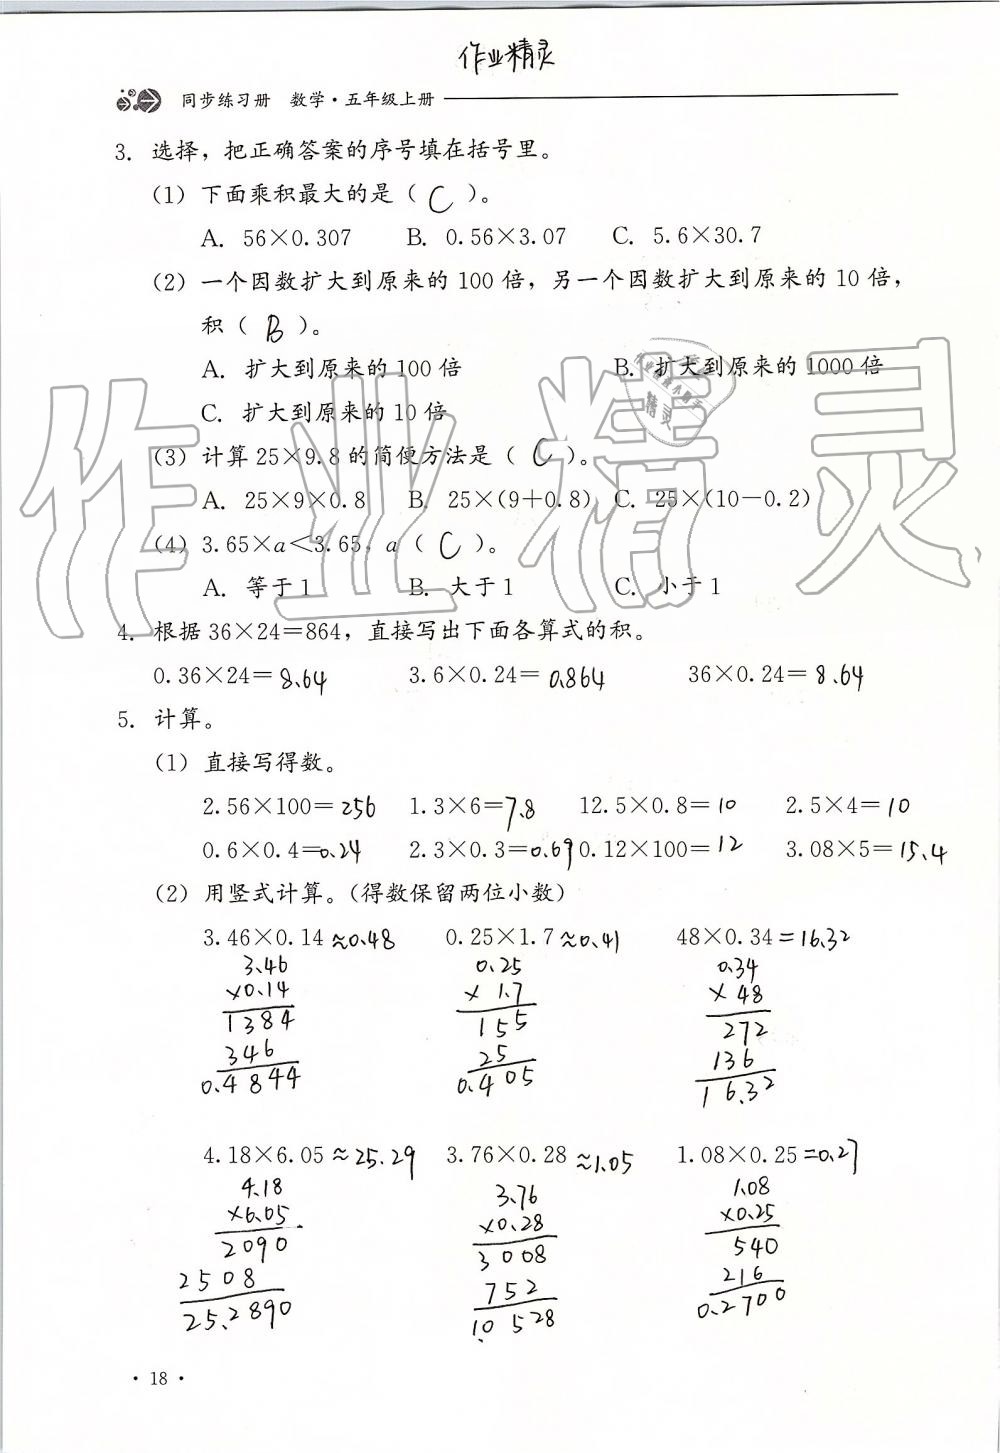 作业精灵
同步练习册 数学·五年级上册
3. 选择，把正确答案的序号填在括号里。
(1) 下面乘积最大的是（ C ）。
A. 56×0.307 B. 0.56×3.07 C. 5.6×30.7
(2) 一个因数扩大到原来的 100 倍，另一个因数扩大到原来的 10 倍，
积（ B ）。
A. 扩大到原来的 100 倍 B. 扩大到原来的 1000 倍
C. 扩大到原来的 10 倍
(3) 计算 25×9.8 的简便方法是（ C ）。
A. 25×9×0.8 B. 25×(9+0.8) C. 25×(10-0.2)
(4) 3.65×a<3.65，a（ C ）。
A. 等于 1 B. 大于 1 C. 小于 1
作业精灵
4. 根据 36×24=864，直接写出下面各算式的积。
0.36×24= 8.64 3.6×0.24= 0.864 36×0.24= 8.64
5. 计算。
(1) 直接写得数。
2.56×100= 256 1.3×6= 7.8 12.5×0.8= 10 2.5×4= 10
0.6×0.4= 0.24 2.3×0.3= 0.69 0.12×100= 12 3.08×5= 15.4
(2) 用竖式计算。(得数保留两位小数)
3.46×0.14 ≈0.48 0.25×1.7 ≈0.41 48×0.34 =16.32
3.46 0.25 0.34
×0.14 × 1.7 × 48
1384 155 272
346 25 136
0.4844 0.405 16.32
4.18×6.05 ≈25.29 3.76×0.28 ≈1.05 1.08×0.25 =0.27
4.18 3.76 1.08
×6.05 ×0.28 ×0.25
2090 3008 540
2508 752 216
25.2890 1.0528 0.2700
· 18 ·